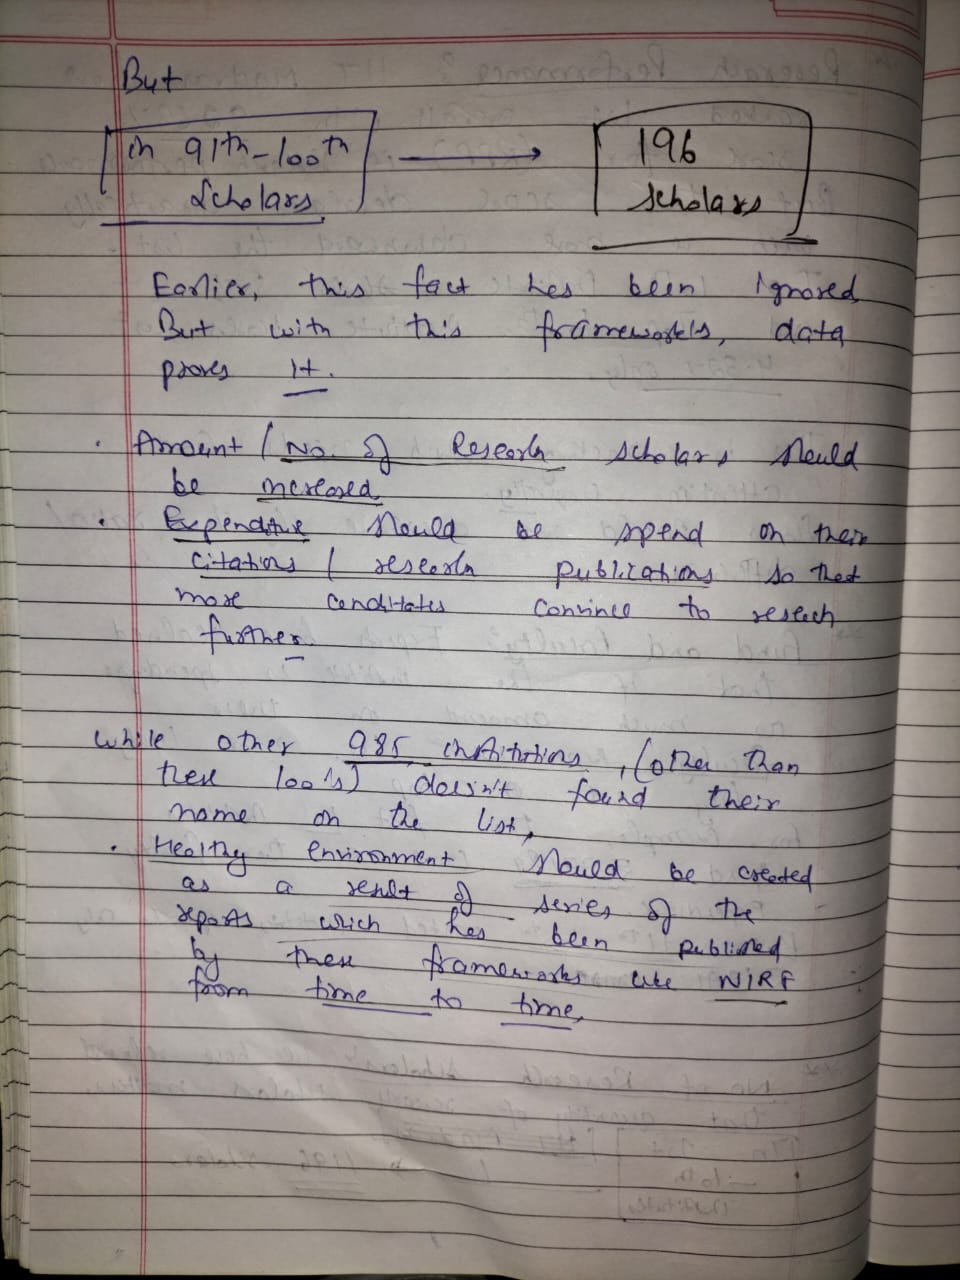 But
in 91th-100th
Scholars
196
scholars
Earlier, this fact hes been ignored
But with this frameworks, data
proves it.
Amount / No. of Research scholars should
be increased.
Expenditure should be spend on their
citations / research publications so that
more canditates convince to reseach
further.
while other 985 institutions, (other than
these 100's) doesn't found their
name on the list,
Healthy environment should be created
as a result of series of the
reports which hes been published
by these frameworks like NIRF
from time to time,